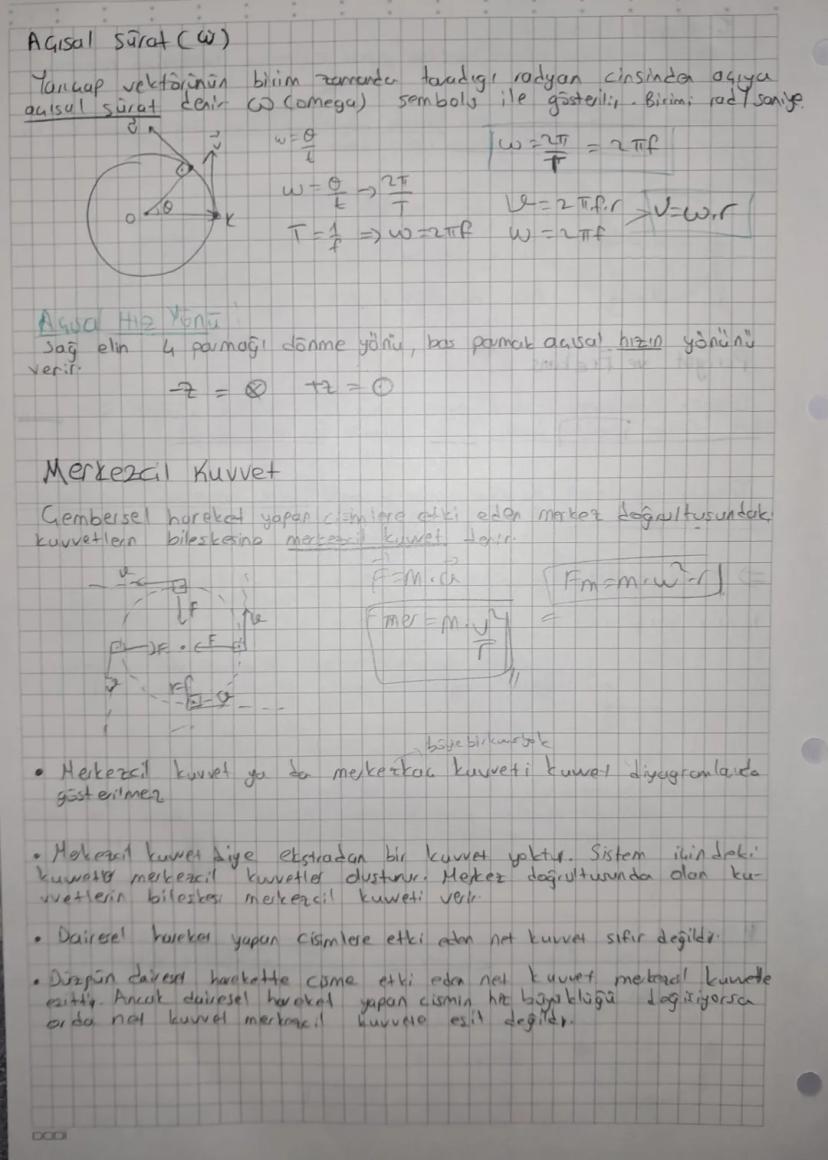 Açısal Sürat (ω)
Yarıçap vektörünün birim zamanda taradığı radyan cinsinden açıya
açısal sürat denir ω (omega) sembolü ile gösterilir. Birimi rad/saniye.
ω = θ/t
ω = 2π/T = 2πf
ω = θ/t → 2π/T
V = 2πf.r
V = ω.r
T = 1/f ⇒ ω = 2πf
ω = 2πf
O θ K
Açısal Hız Yönü
Sağ elin 4 parmağı dönme yönü, baş parmak açısal hızın yönünü
verir.
-z = ⊗ +z = ⊙
Merkezcil Kuvvet
Çembersel hareket yapan cisimlere etki eden merkez doğrultusundaki
kuvvetlerin bileşkesine merkezcil kuvvet denir.
F = m.a
Fm = m.ω².r
Fmer = m.v²/r
v F
F F v
F v
böyle bir kuvvet yok
• Merkezcil kuvvet ya da merkezkaç kuvveti kuvvet diyagramlarda
gösterilmez
• Merkezcil kuvvet diye ekstradan bir kuvvet yoktur. Sistem içindeki
merkezcil kuvvetler Merkez doğrultusunda olan ku-
vvetlerin bileşkesi merkezcil kuvveti verir.
• Dairesel hareket yapan cisimlere etki eden net kuvvet sıfır değildir.
• Düzgün dairesel harekette cisme etki eden net kuvvet merkezcil kuvvete
eşittir. Ancak dairesel hareket yapan cismin hız büyüklüğü değişiyorsa
orda net kuvvet merkezcil kuvvete eşit değildir.